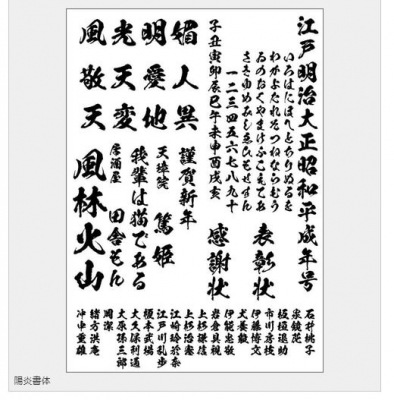 江戸明治大正昭和平成年号
いろはにほへとちりぬるを
わかよたれそつねならむう
ゐのおくやまけふこえてあ
さきゆめみしゑひもせすん
一二三四五六七八九十
子丑寅卯辰巳午未申酉戌亥
表彰状
感謝状
媚人異
明愛他
光天変
風敬天
謹賀新年
天璋院
篤姫
我輩は猫である
居酒屋
田舎もん
風林火山
石井桃子
泉鏡花
板垣退助
市川房枝
伊藤博文
犬養毅
伊能忠敬
岩倉具視
上杉謙信
上杉治憲
江崎玲於奈
江戸川乱歩
榎本武揚
大久保利通
大原孫三郎
岡潔
緒方洪庵
沖中重雄
陽炎書体